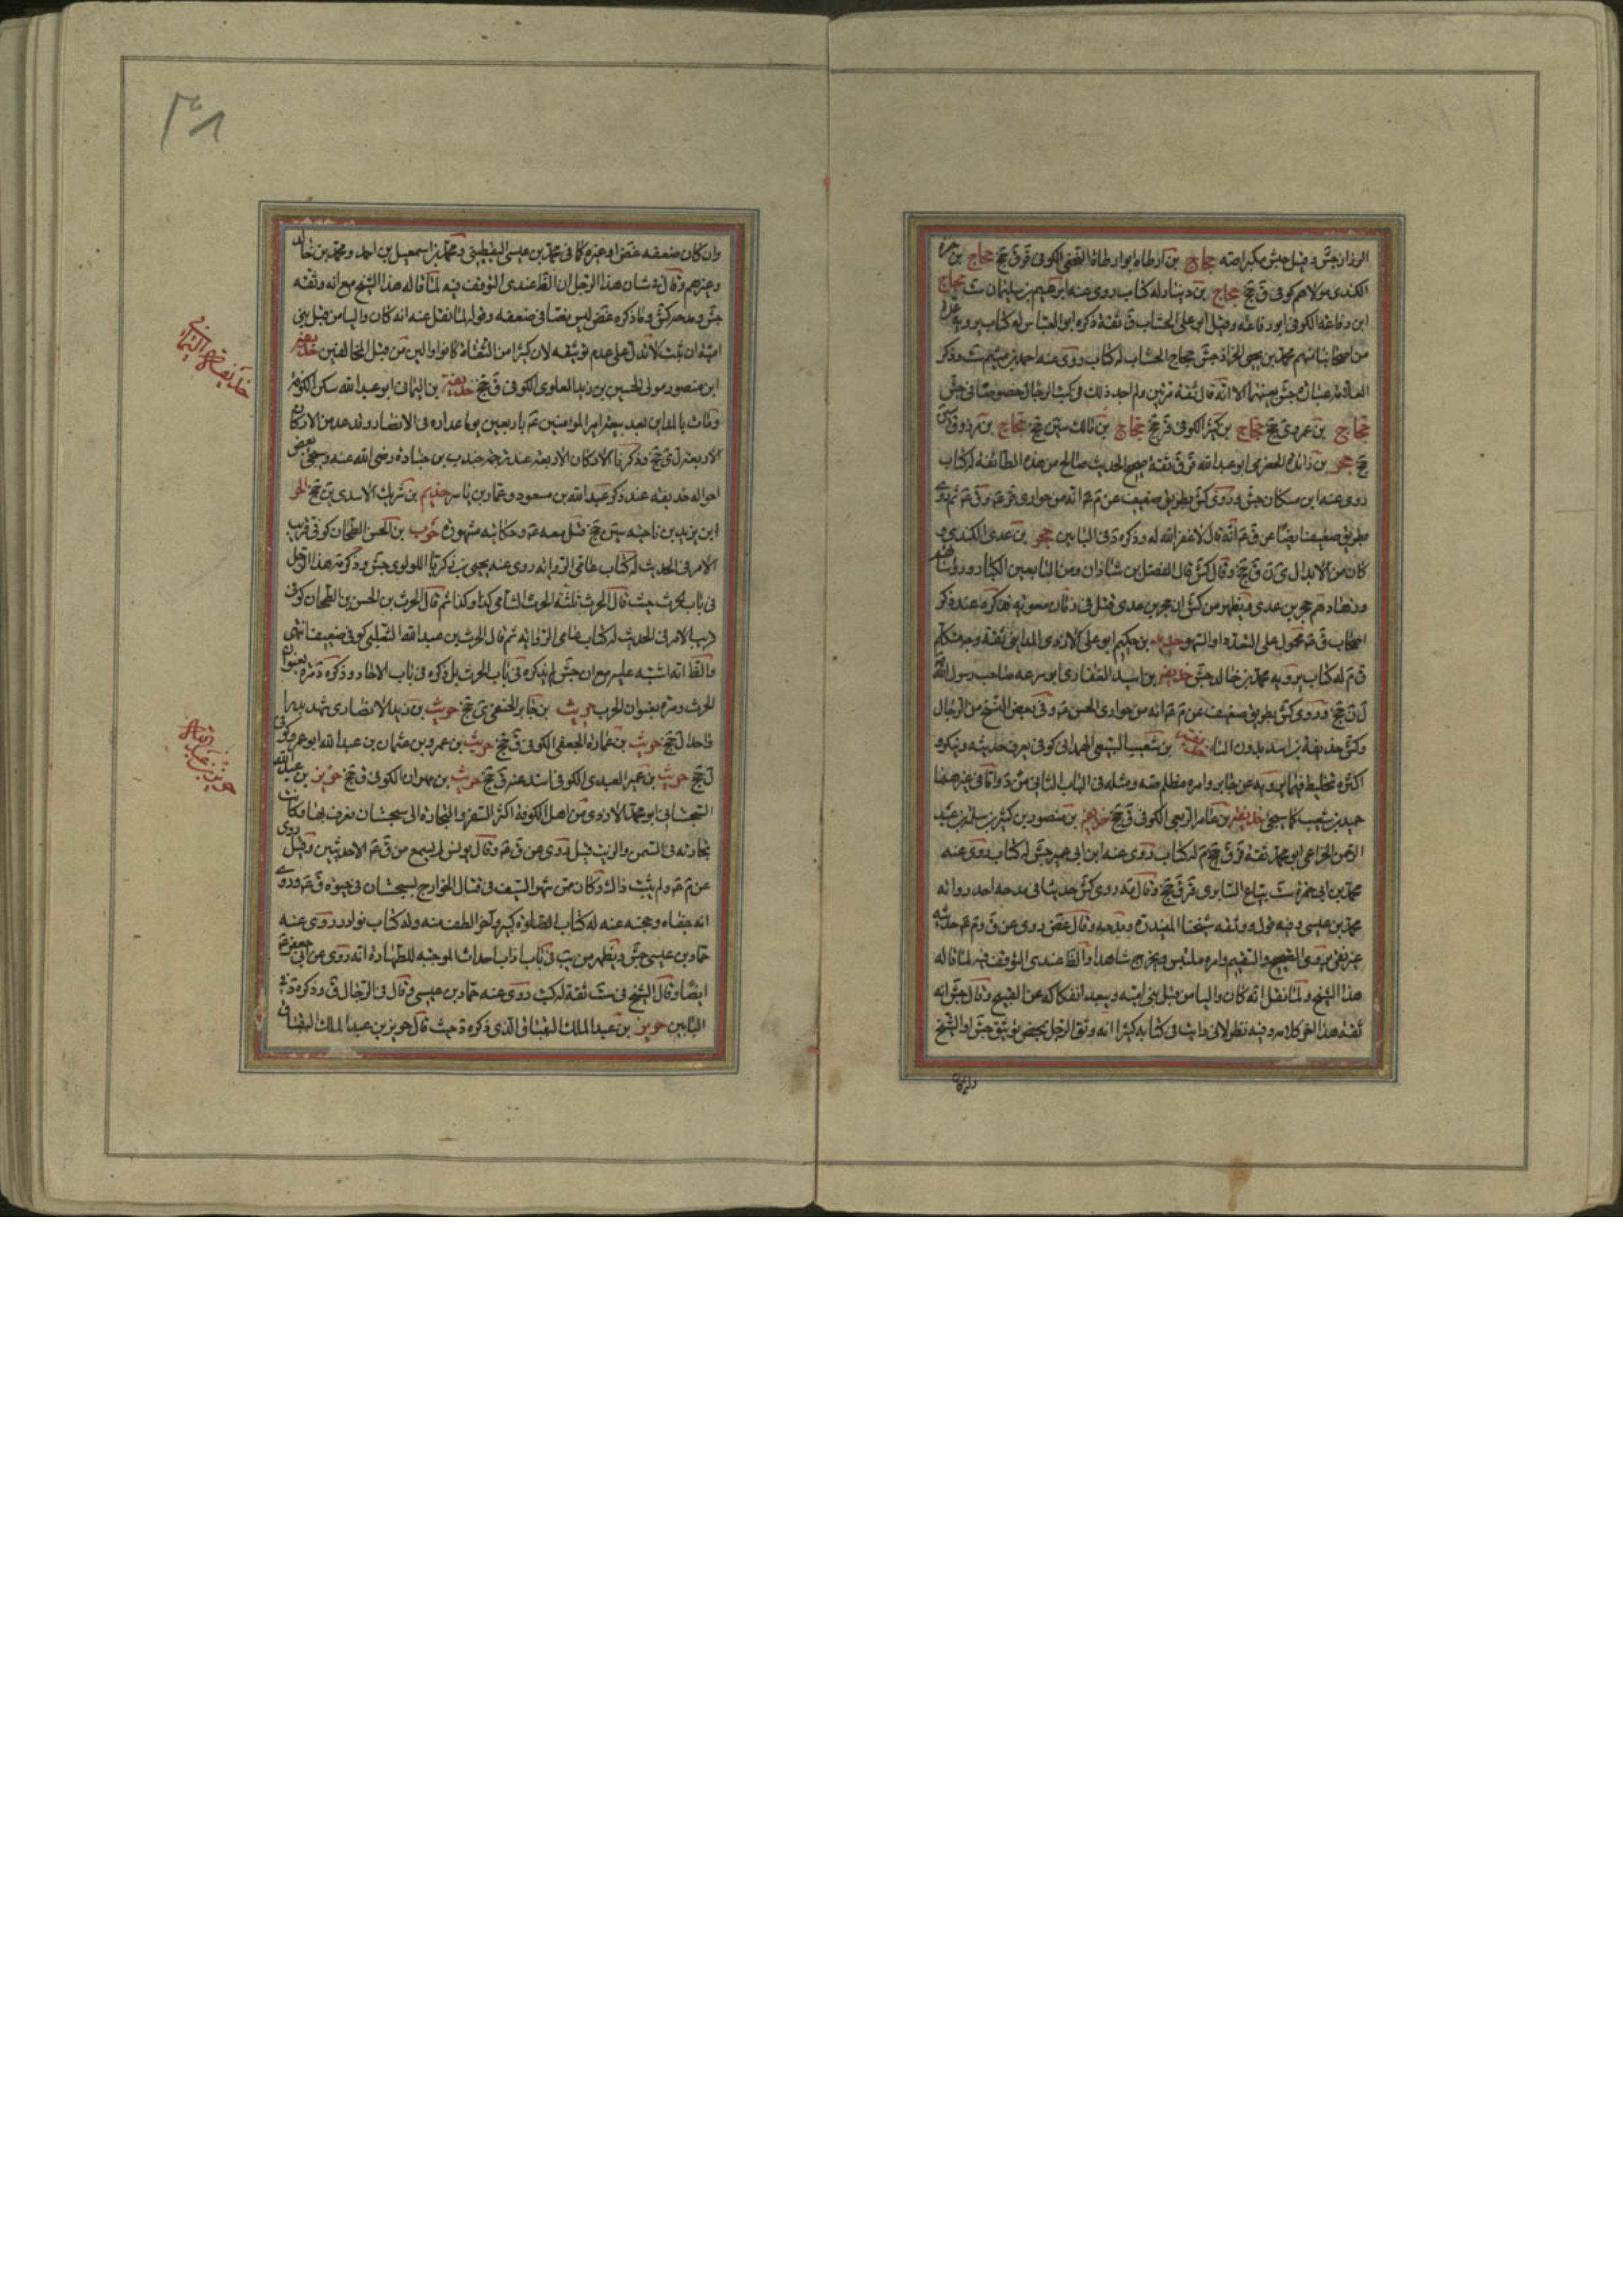 حجاج بن ارطاه ابو ارطاة النخعي الكوفي ق ق جخ حجاج بن حمزة
الكندي مولاهم كوفي ق جخ حجاج بن دينار له كتاب روى عنه ابرهيم بن سليمان ست حجاج
ابن رفاعة الكوفي ابو رفاعة وقيل ابو علي الخشاب ق ثقة ذكره ابو العباس له كتاب يرويه عدة
من اصحابنا منهم محمد بن يحيى الخزاز جش حجاج الخشاب له كتاب روى عنه احمد بن ميثم ست وذكر
حجاج بن عمرو ى جخ حجاج بن كثير الكوفي قر جخ حجاج بن مالك سين جخ حجاج بن مرزوق سين
جخ حجر بن زائدة الحضرمي ابو عبد الله قر ق ثقة صحيح الحديث صالح من هذه الطائفة له كتاب
روى عنه ابن مسكان جش وروى كش بطريق ضعيف عن م ع انه من حواري قر ع و ق ع ثم روى
بطريق ضعيف ايضا عن ق ع انه قال لا غفر الله له وذكره د في البابين حجر بن عدي الكندي و
كان من الابدال ل ى ن ق جخ وقال كش قال الفضل بن شاذان ومن التابعين الكبار ورؤسائهم
وزهادهم حجر بن عدي
اصحاب ق ع محمول على
بن حكيم ابو علي الازدي المدايني ثقة وجه متكلم
ق م له كتاب يرويه محمد بن خالد جش حذيفة بن اسيد الغفاري ابو سرعه صاحب رسول الله
ل ن جخ وروى كش بطريق ضعيف عن م ع انه من حواري الحسن ع وفي بعض النسخ من الرجال
وكش حذيفة بن اسد بدون الياء حذيفة بن شعيب السبيعي الهمداني كوفي يعرف حديثه وينكر و
اكثره تخليط فيما يرويه عن جابر وامره مظلم
حميد بن شعيب كما سيجئ حذيفة بن عامر الربعي الكوفي ق جخ حذيفة بن منصور بن كثير بن سلمة بن عبد
الرحمن الخزاعي ابو محمد ثقة قر ق م له كتاب روى عنه ابن ابي عمير جش له كتاب روى عنه
محمد بن ابي حمزة ست بياع السابري قر ق جخ وقال مة روى كش حديثا في مدحه احد رواته
محمد بن عيسى وفيه قول وثقه شيخنا المفيد ره ومدحه وقال غض روى عن ق و م ع حديثه
غير نقي يروى الصحيح والسقيم وامره ملتبس ويخرج شاهدا والظ عندي التوقف فيه لما قاله
هذا الشيخ ولما نقل انه كان واليا من قبل بني امية ويبعد انفكاكه عن القبيح وقال جش انه
ثقة هذا اخر كلامه وفيه نظر لاني رايت في كتابه كثيرا انه وثق الرجل بمحض توثيق جش او الشيخ
وان كان
وان كان ضعفه غض او غيره كما في محمد بن عيسى اليقطيني ومحمد بن اسمعيل بن احمد ومحمد بن خالد
وغيرهم وقال في شان هذا الرجل ان الظ عندي التوقف فيه لما قاله هذا الشيخ مع انه وثقه
جش ومدحه كش وما ذكره غض ليس نصا في ضعفه وقوله لما نقل عنه انه كان واليا من قبل بني
امية ان ثبت لا تدل على عدم توثيقه لان كثيرا من الثقات كانوا والين من قبل المخالفين حذيفة
ابن منصور مولى الحسين بن زيد العلوي الكوفي ق جخ حذيفة بن اليمان ابو عبد الله سكن الكوفة
ومات بالمداين بعد بيعة امير المؤمنين ع باربعين يوما عداده في الانصار وقد عد من الاركان
الاربعة ل ى جخ وذكرنا الاركان الاربعة عند ترجمة جندب بن جنادة رضي الله عنه وسيجئ بعض
احوال حذيفة عند ذكر عبد الله بن مسعود وعمار بن ياسر حذيم بن شريك الاسدي ين جخ الحر
ابن يزيد بن ناجية سين جخ قتل معه ع وحكايته مشهورة حرب بن الحسن الطحان كوفي قريب
الامر في الحديث له كتاب عامي الرواية روى عنه يحيى بن زكريا اللولوي جش وذكر مة هذا الرجل
في باب الحرث حيث قال الحرث ثلثة الحرث الشامي كذا وكذا ثم قال الحرث بن الحسن الطحان كوفي
قريب الامر في الحديث له كتاب عامي الرواية ثم قال الحرث بن عبد الله التغلبي كوفي ضعيف انتهى
والظ انه اشتبه عليه مع ان جش لم يذكره في باب الحرث بل ذكره في باب الاحاد وذكره د مرة بعنوان
الحرث ومرة بعنوان الحرب حريث بن جابر الحنفي ى جخ حريث بن زيد الانصاري شهد بدرا
واحدا ل جخ حريث بن عمارة الجعفي الكوفي ق جخ حريث بن عمرو بن عثمان بن عبد الله ابو عمرو كوفي
ل جخ حريث بن عمير العبدي الكوفي اسند عنه ق جخ حريث بن مهران الكوفي ق جخ حريز بن عبد الله
السجستاني ابو محمد الازدي من اهل الكوفة اكثر السفر والتجارة الى سجستان فعرف بها وكانت
تجارته في السمن والزيت قيل روى عن ق ع وقال يونس لم يسمع من ق ع الا حديثين وقيل روى
عن م ع ولم يثبت ذاك وكان ممن شهر السيف في قتال الخوارج بسجستان في حيوة ق ع وروى
انه جفاه وحجبه عنه له كتاب الصلوة كبير واخر الطف منه وله كتاب نوادر روى عنه
حماد بن عيسى جش ويظهر من يب في باب اداب احداث الموجبة للطهارة انه روى عن ابي جعفر ع
ايضا وقال الشيخ في ست ثقة له كتب روى عنه حماد بن عيسى وقال في الرجال ق وذكره د في
البابين حريز بن عبد الملك البقباق الذي ذكره د حيث قال حريز بن عبد الملك البقباق
حذيفة اليماني
حريز بن عبد الله